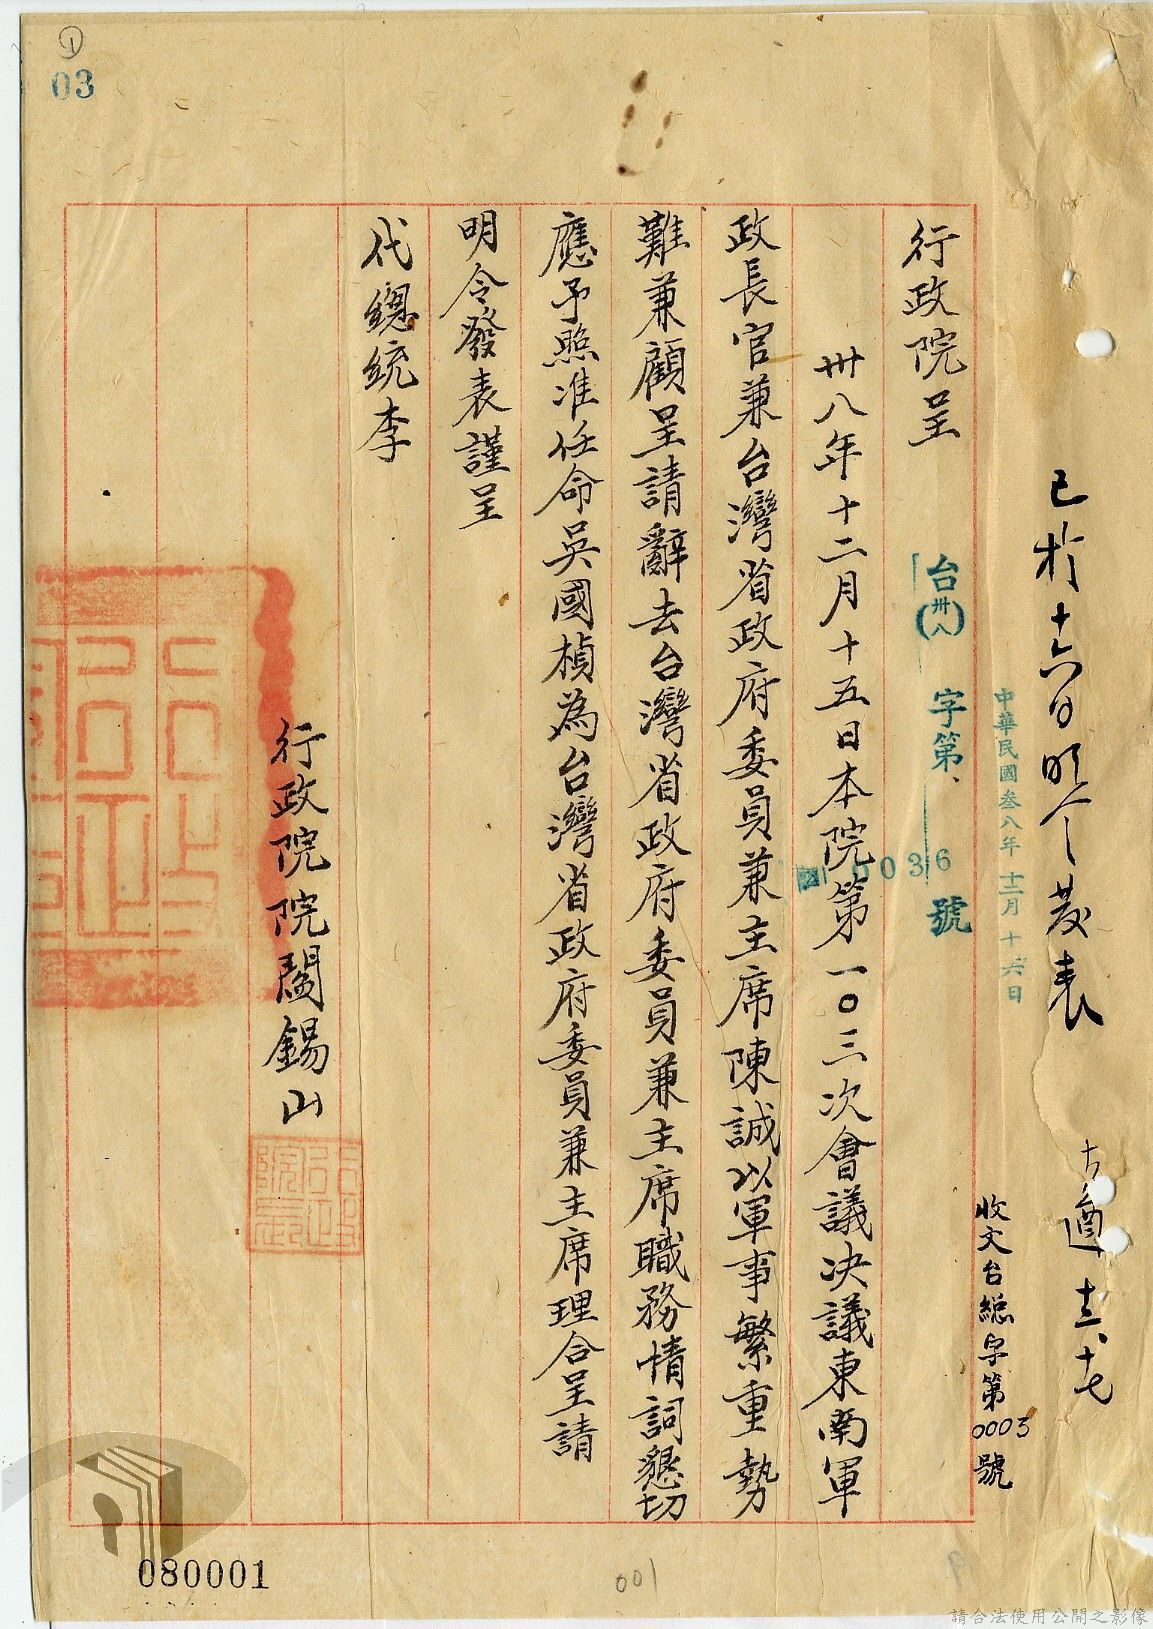 已於十六日明令發表
十二、十七
收文台總字第0003號
中華民國叁八年十二月十六日
台(卅八)字第0036號
行政院呈
卅八年十二月十五日本院第一〇三次會議決議東南軍
政長官兼台灣省政府委員兼主席陳誠以軍事繁重勢
難兼顧呈請辭去台灣省政府委員兼主席職務情詞懇切
應予照准任命吳國楨為台灣省政府委員兼主席理合呈請
明令發表謹呈
代總統李
行政院院長閻錫山
1
03
080001
001
請合法使用公開之影像